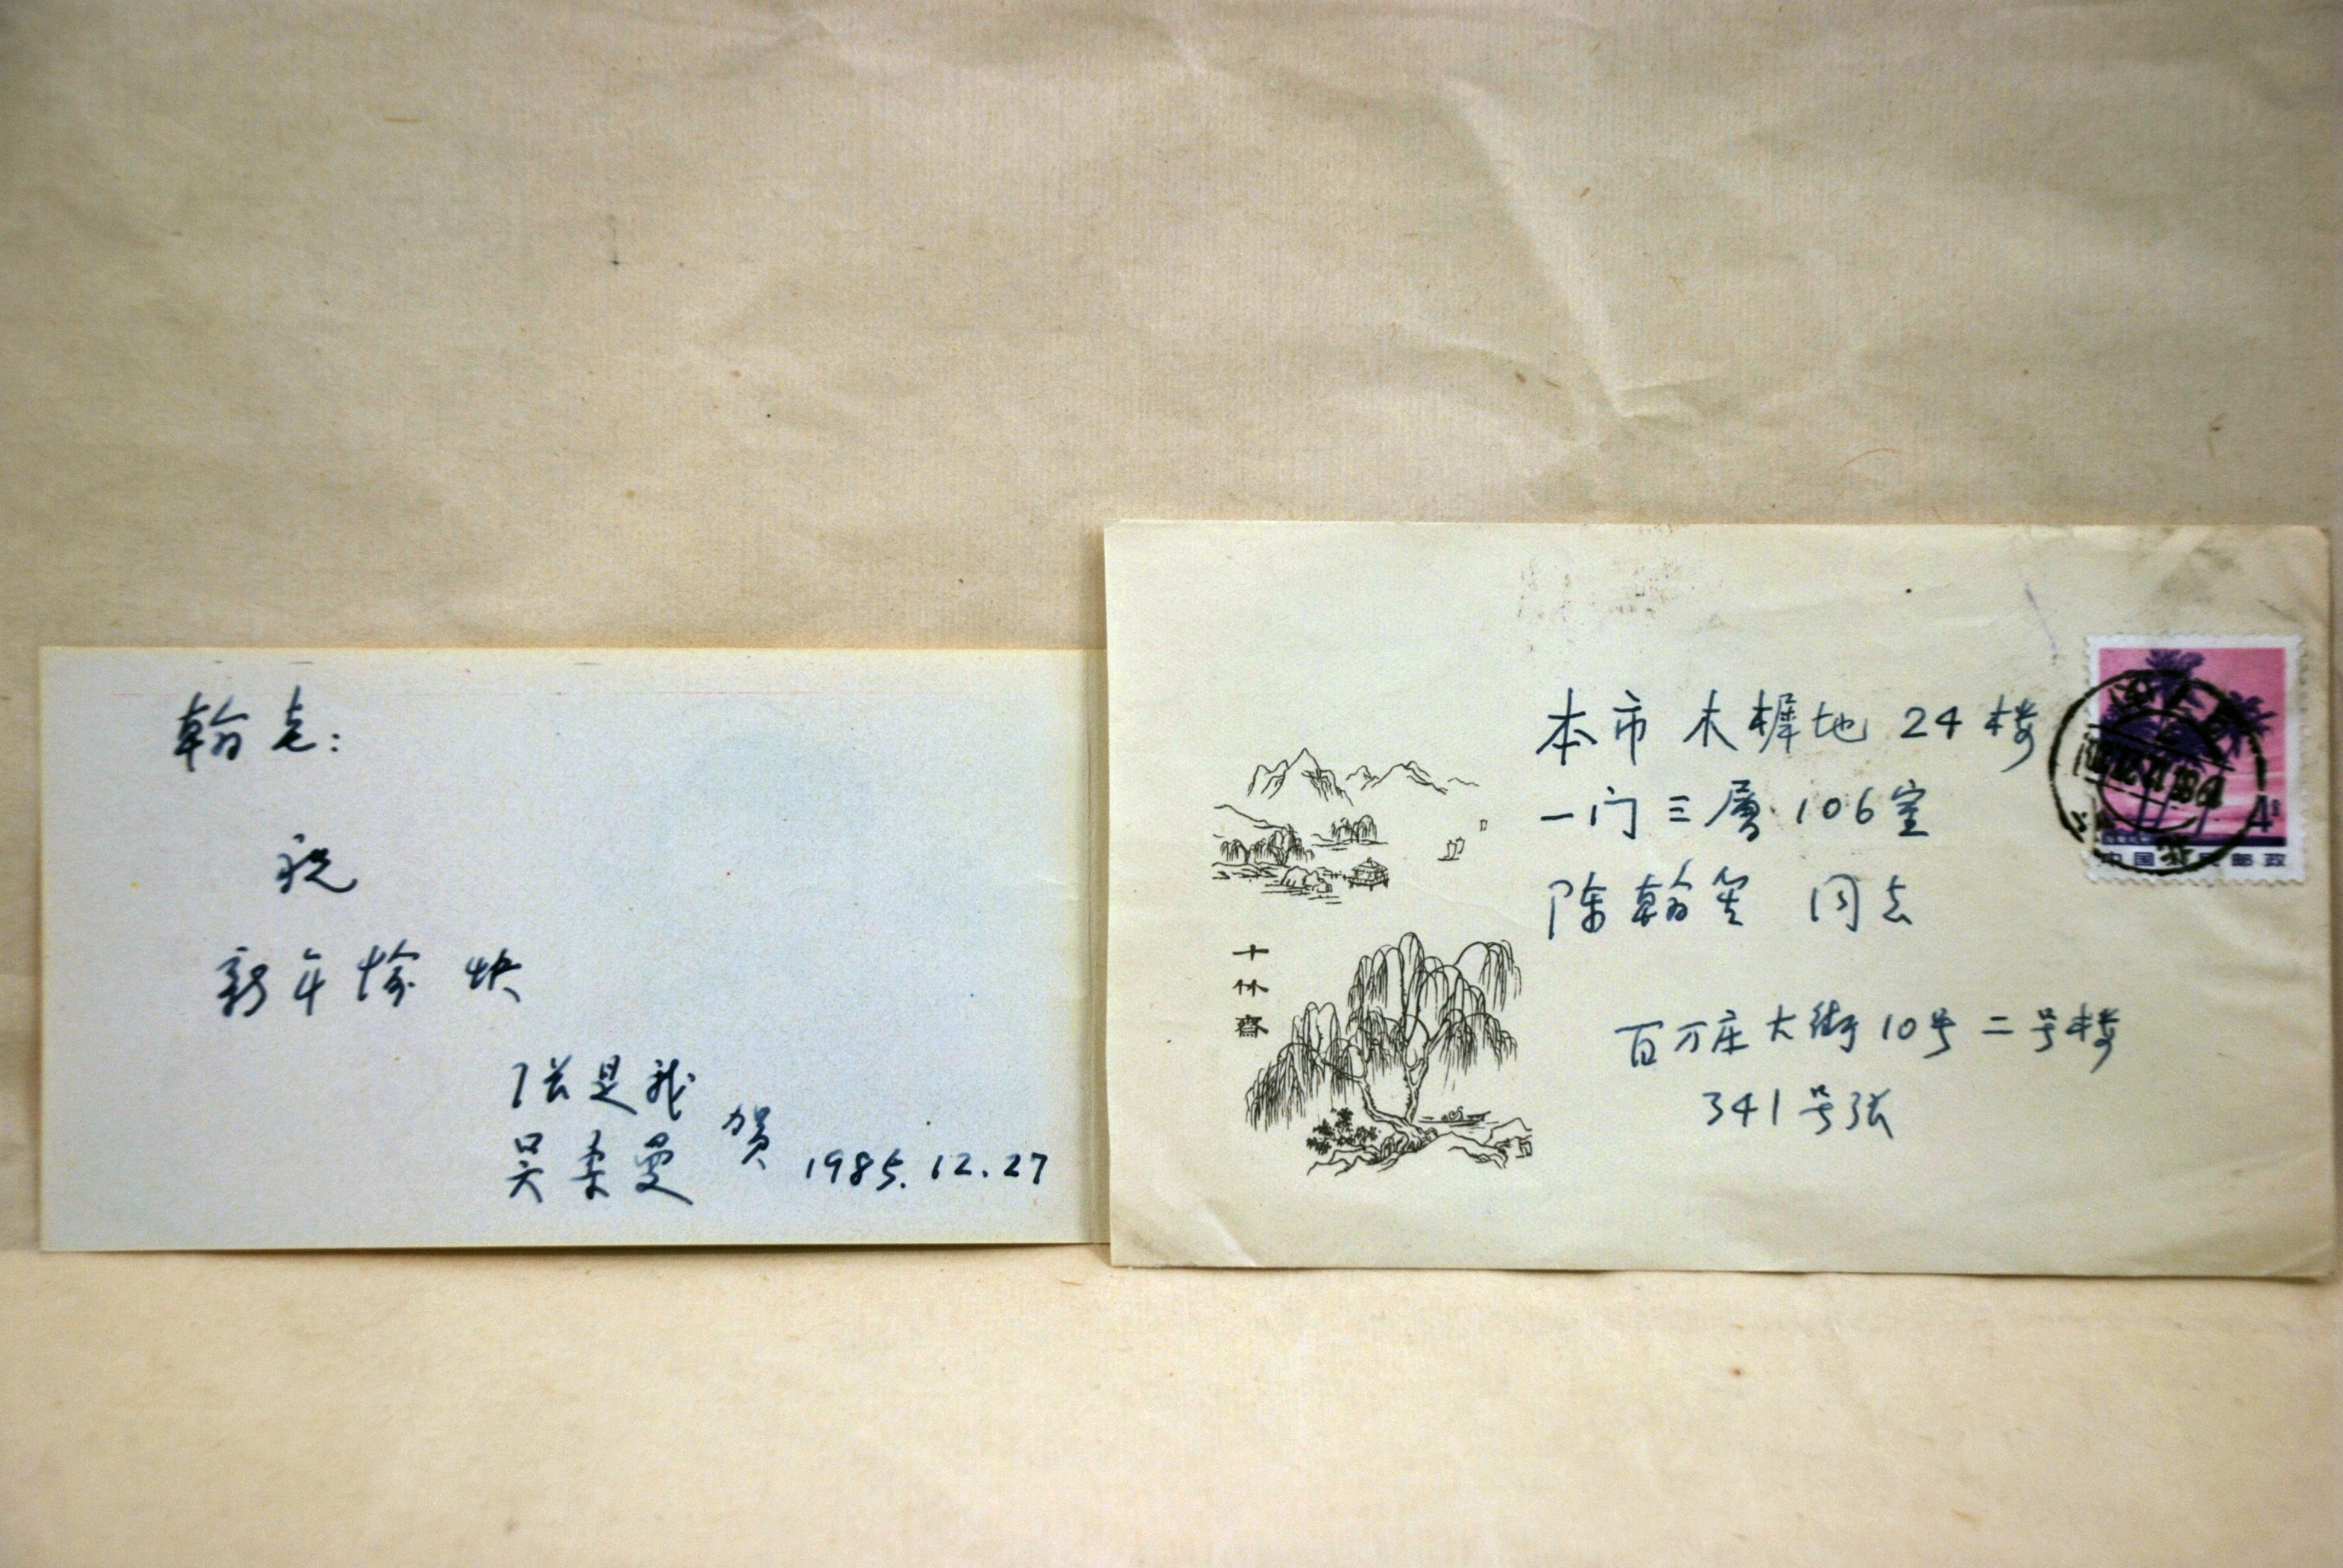 翰老：
祝
新年愉快
张是我
吴柔曼
贺
1985.12.27
本市 木樨地 24楼
一门三層 106室
陈翰笙 同志
百万庄大街10号二号楼
341号张
十竹齋
中国人民邮政